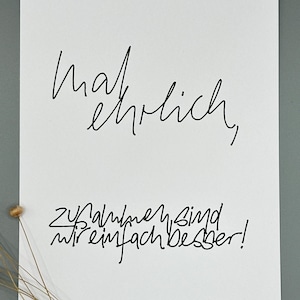 mal
ehrlich,
zusammen sind
wir einfach besser!